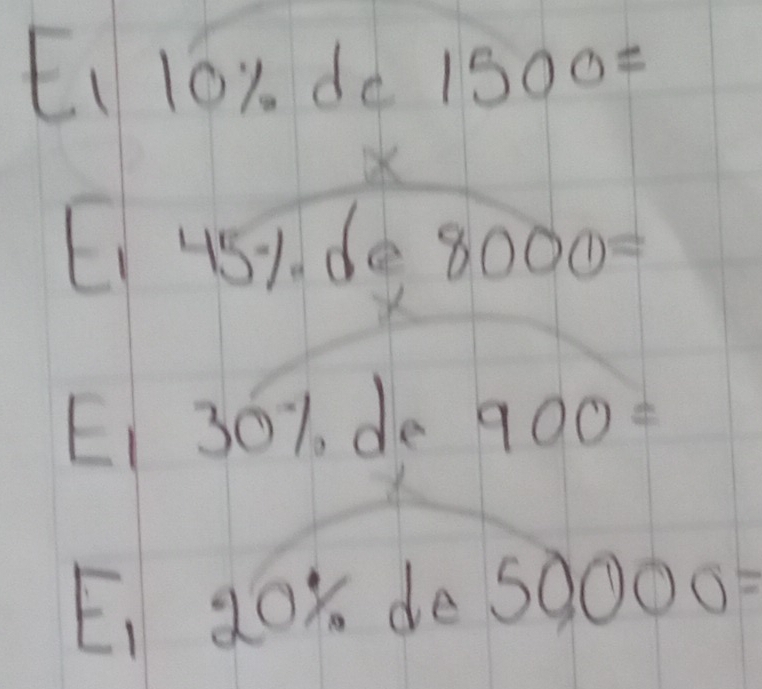 E1 10% de 1500=
x
E1 45% de 8000=
x
E1 30% de 900=
x
E1 20% de 50,000=